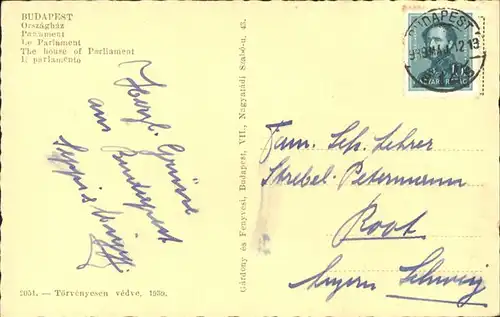 BUDAPEST
Országház
Parlament
Le Parlament
The house of Parliament
Il parlamento
BUDAPEST
13
MAGYAR
Herzl. Grüsse
aus
Budapest
Gárdony és Fenyvesi, Budapest, VII., Nagyatádi Szabó-u. 43.
Fam. Lehrer
Strebel-Petermann
Root
Luzern Schweiz
2051. — Törvényesen védve, 1939.